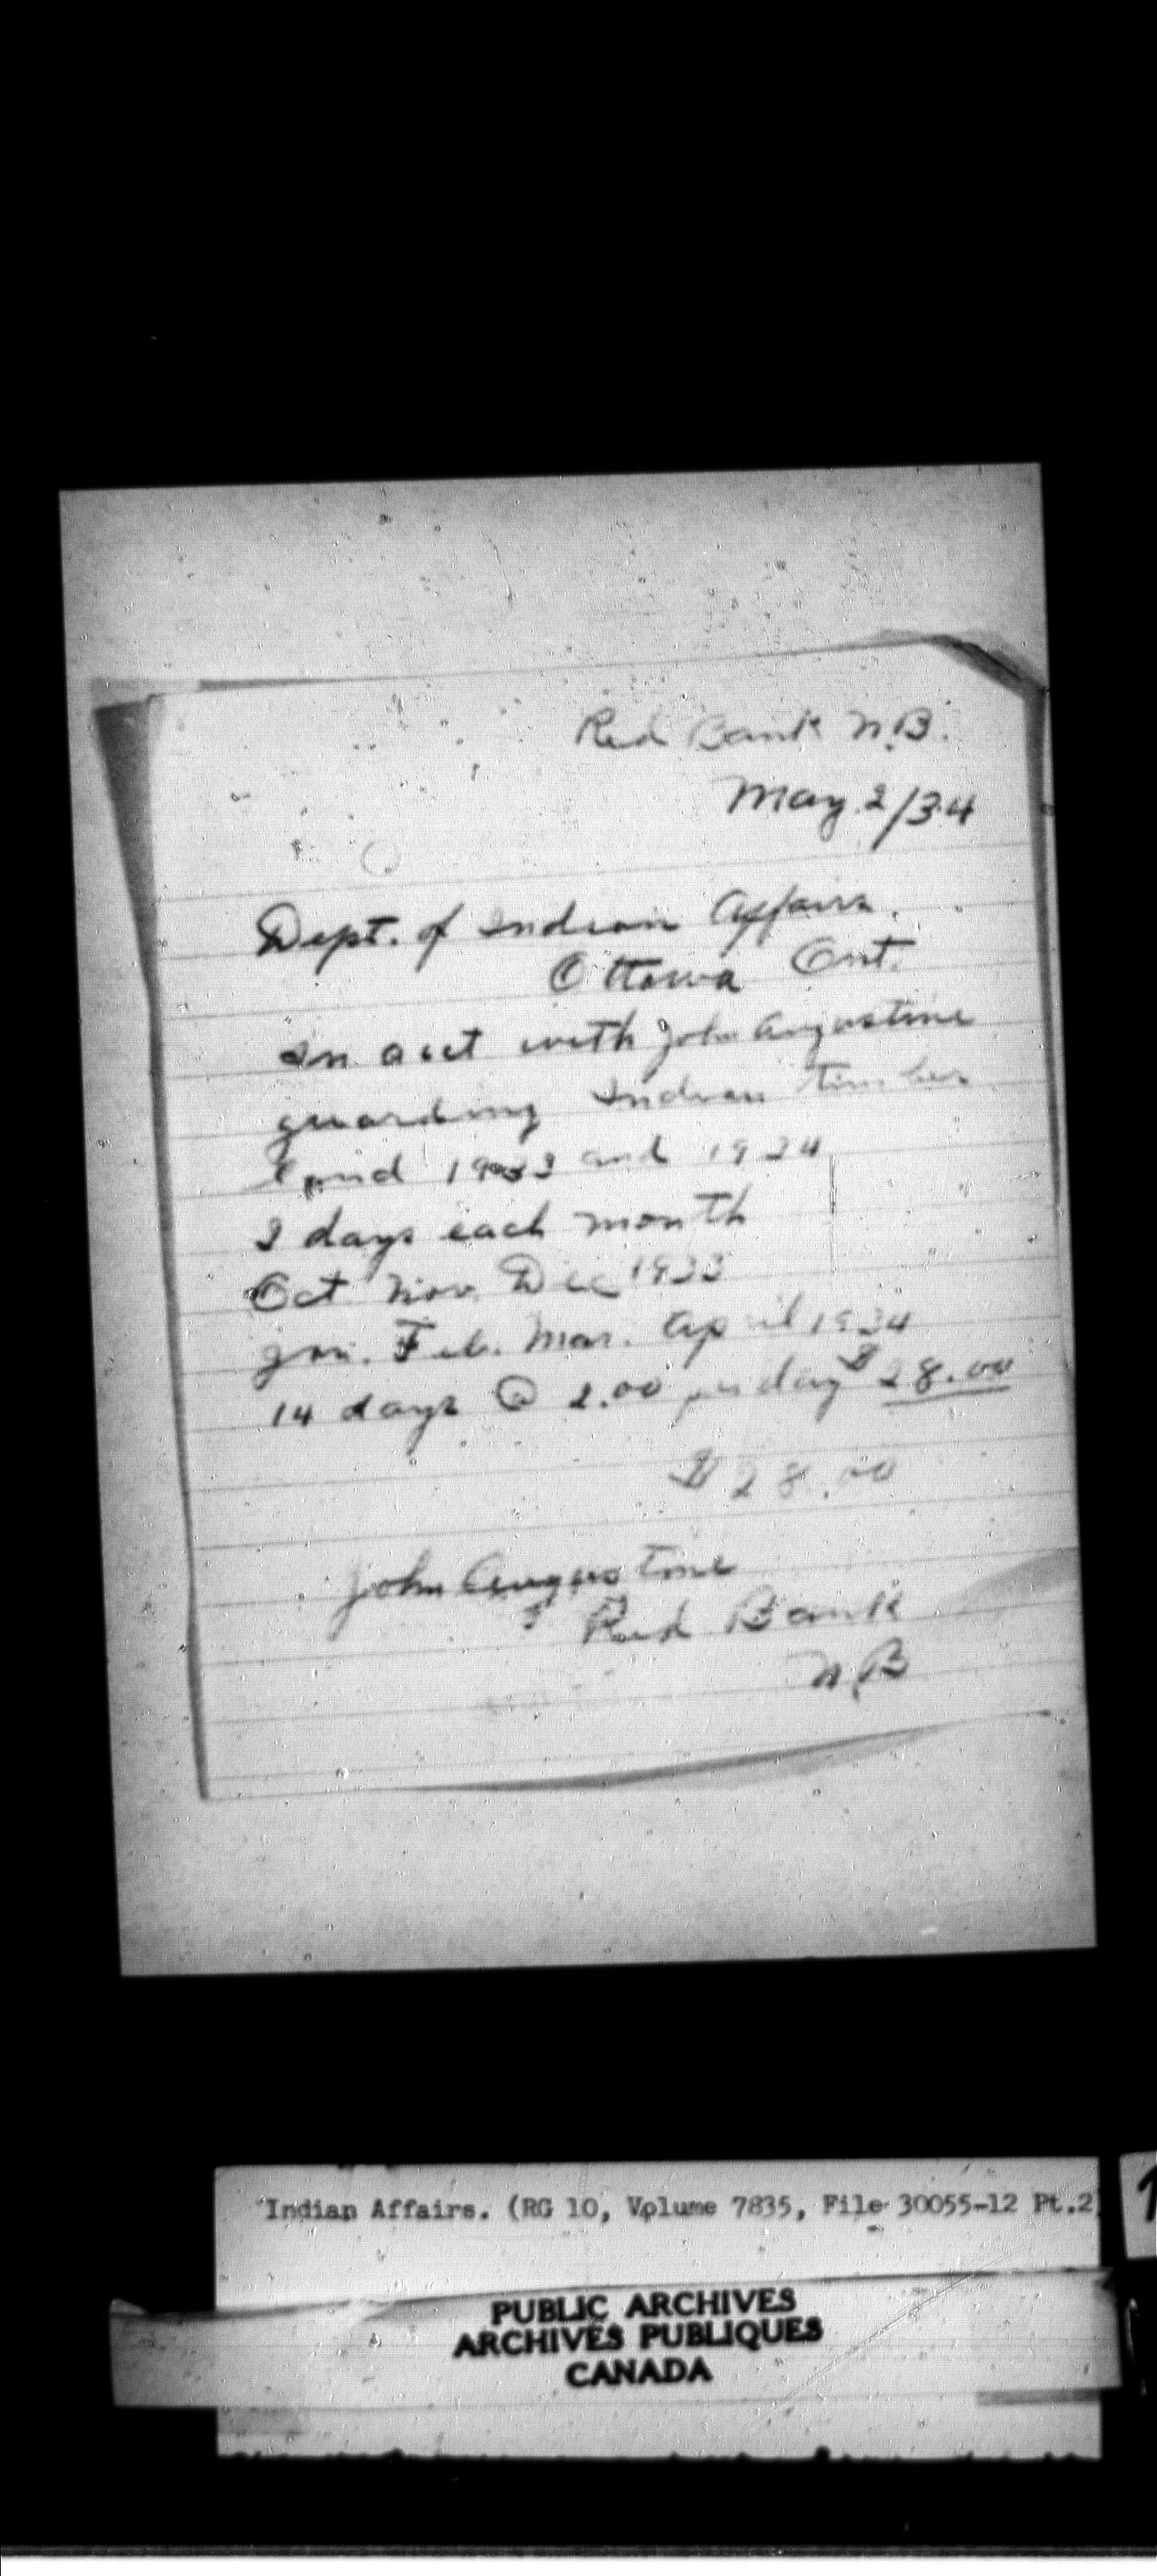 Red Bank N.B.
May 2/34
Dept. of Indian Affairs.
Ottawa Ont.
In acct with John Augustine
guarding Indian timber
land 1933 and 1934
2 days each month
Oct Nov. Dec 1933
Jan. Feb. Mar. April 1934
14 days @ 2.00 per day $28.00
$28.00
John Augustine
Red Bank
N.B
Indian Affairs. (RG 10, Volume 7835, File 30055-12 Pt.2)
PUBLIC ARCHIVES
ARCHIVES PUBLIQUES
CANADA